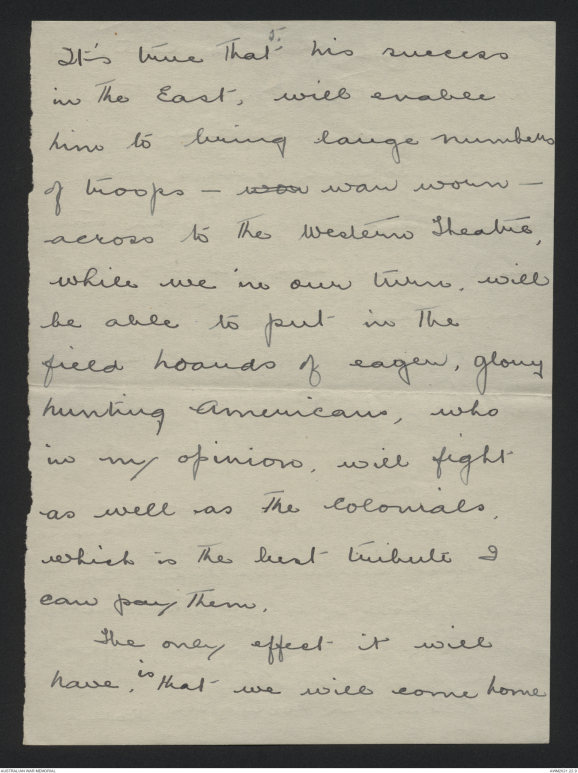 5.
It's true that his success
in the East, will enable
him to bring large numbers
of troops — war worn —
across to the Western Theatre,
while we in our turn, will
be able to put in the
field hoards of eager, glory
hunting Americans, who
in my opinion, will fight
as well as the Colonials,
which is the best tribute I
can pay them.
The only effect it will
have, is that we will come home
AUSTRALIAN WAR MEMORIAL